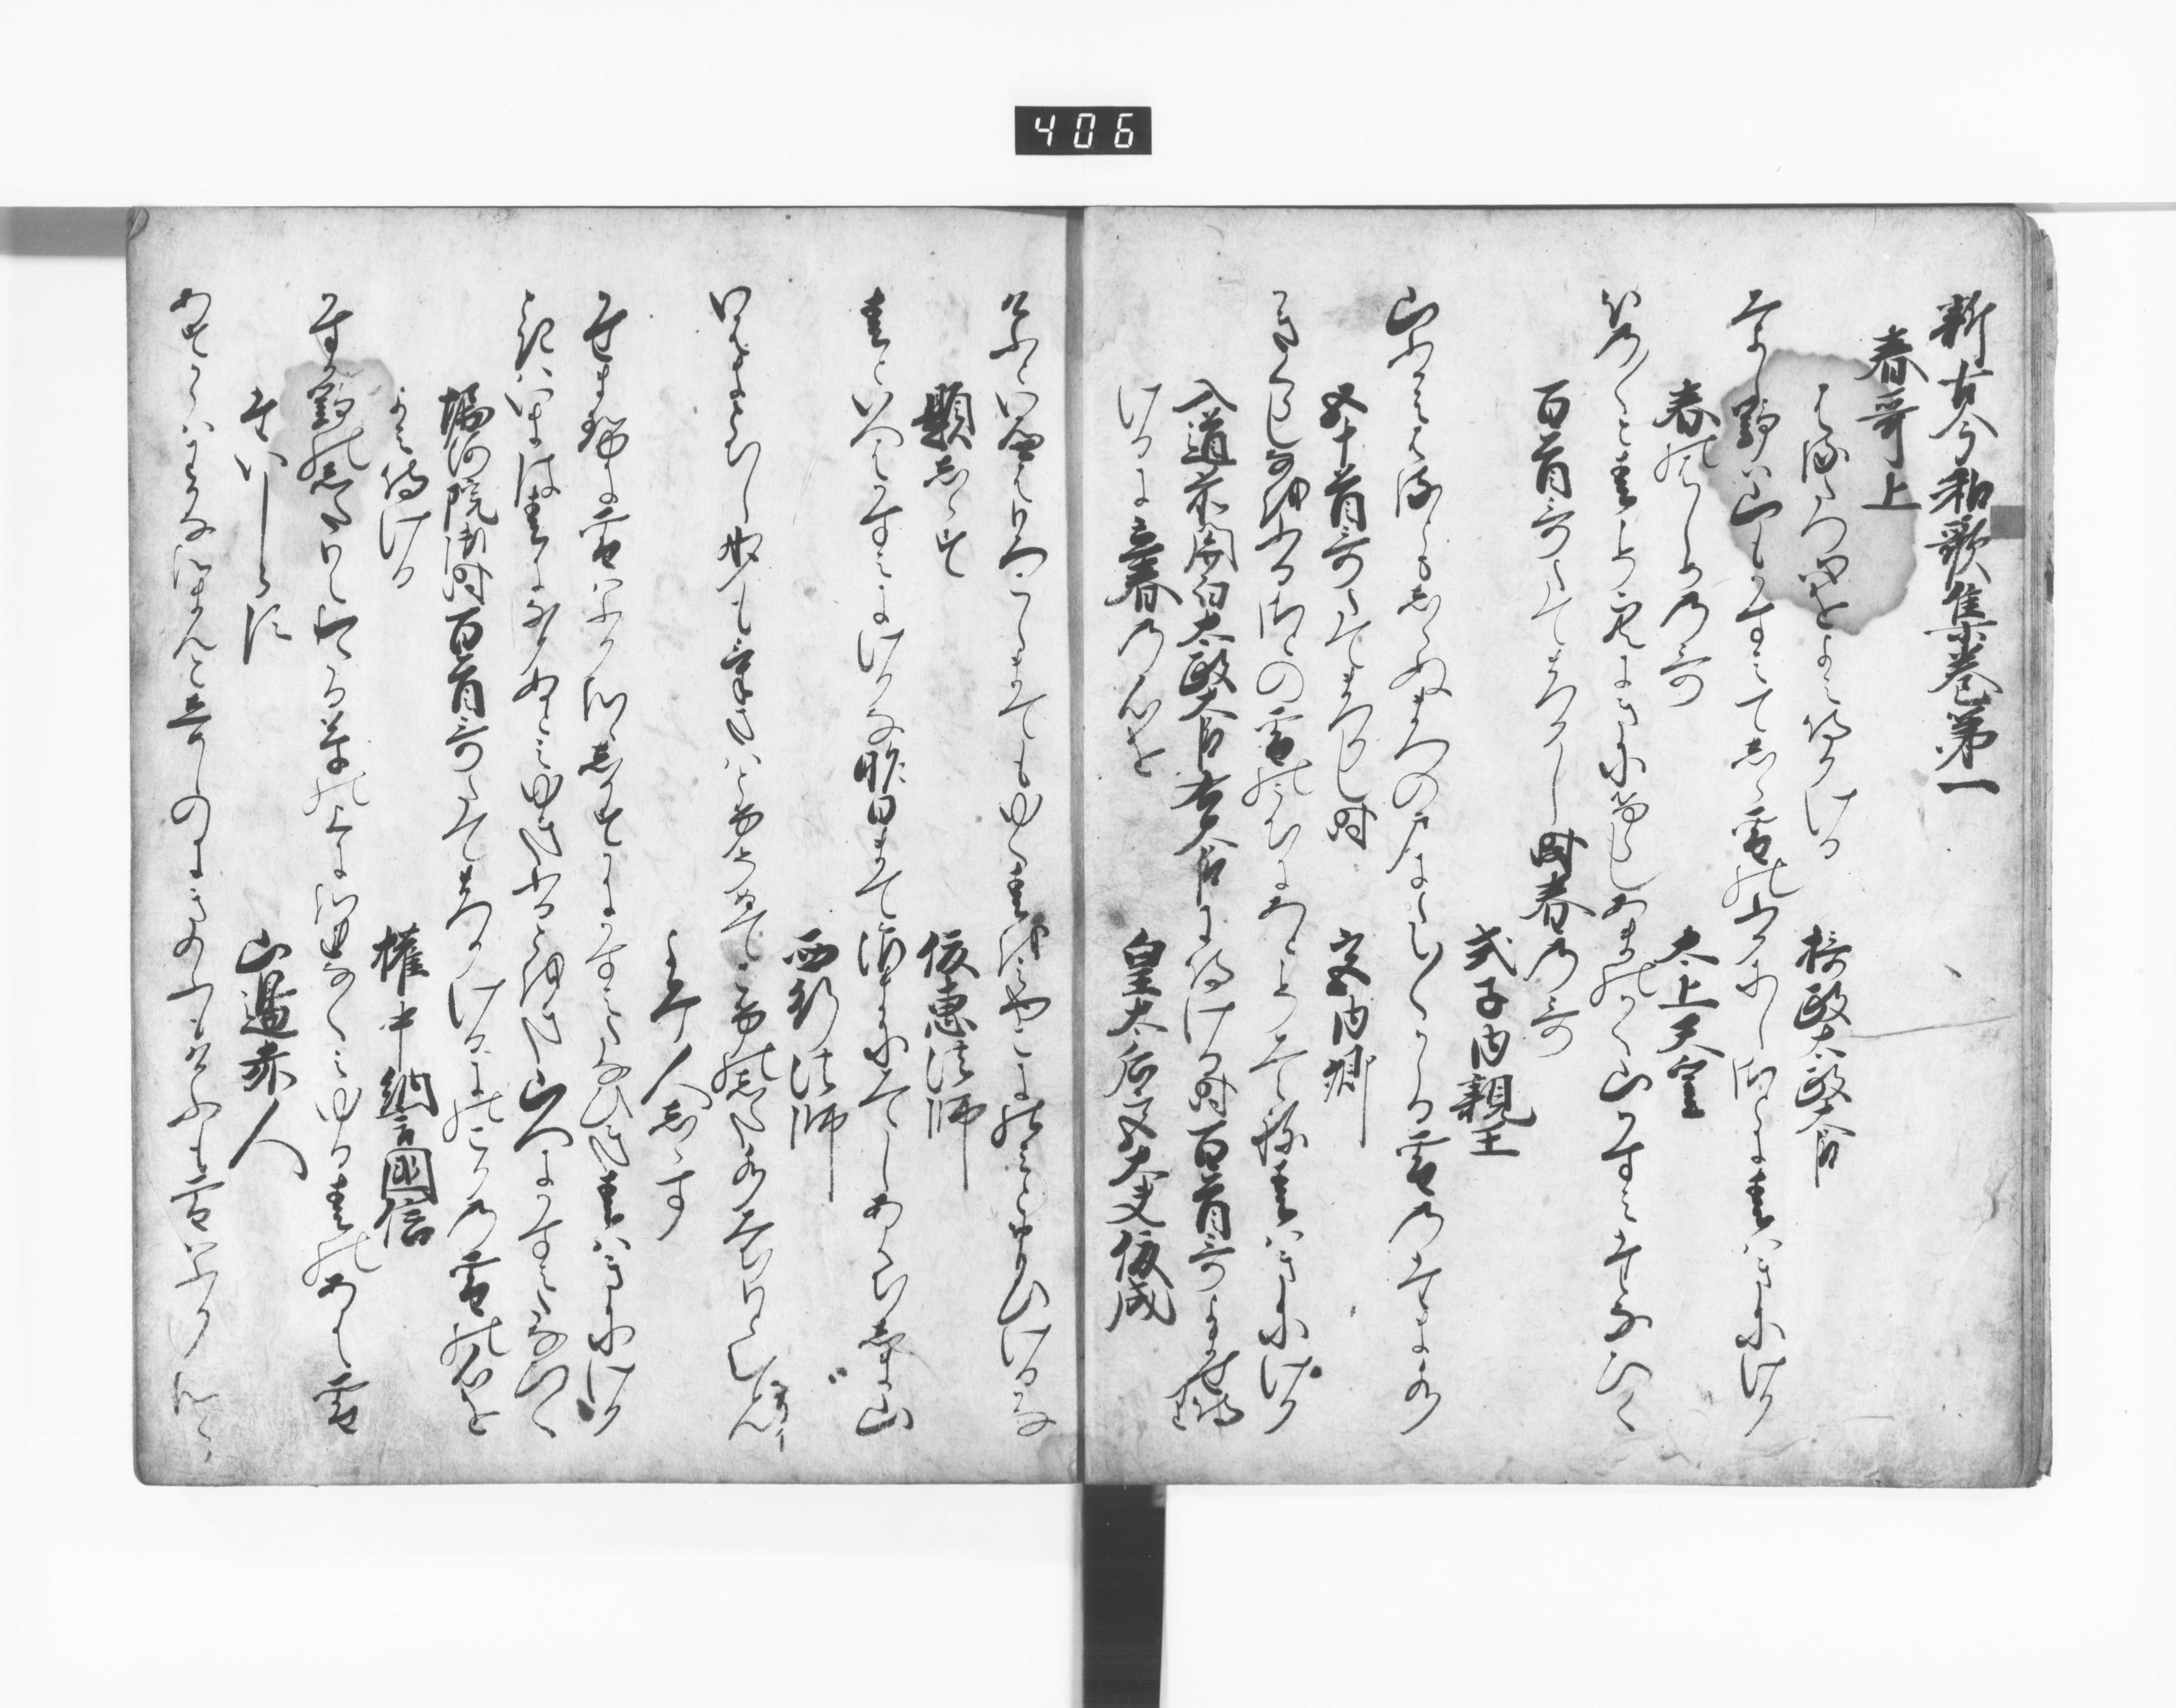 406
新古今和歌集巻第一
春哥上
はるたつ心をよみ侍ける
摂政太政大臣
みよし野は山もかすみてしら雪のふりにし里に春はきにけり
春のはしめの哥
太上天皇
ほの〳〵と春こそ空にきにけらしあまのかく山かすみたなひく
百首哥たてまつりし時春の哥
式子内親王
山ふかみ春ともしらぬまつの戸にたえ〳〵かゝる雪の玉水
五十首哥たてまつりし時
宮内卿
かきくらし猶ふる里の雪のうちにあとこそ見えね春はきにけり
入道前関白太政大臣右大臣に侍ける時百首哥よませ侍
けるに立春の心を
皇太后宮大夫俊成
けふといへはもろこしまても行春を都にのみとおもひけるかな
題しらす
俊恵法師
春といへはかすみにけりな昨日まて浪まに見えしあはち嶋山
西行法師
岩まとちし氷も今朝はとけそめて苔の下水道もとむらん
よみ人しらす
風ませに雪はふりつゝしかすかに霞たなひき春はきにけり
時はいまは春になりぬとみ雪ふる遠き山へにかすみたなひく
堀河院御時百首哥たてまつりけるにのこりの雪の心を
よみ侍ける
権中納言国信
かすか野の下もえわたる草の上につれなくみゆる春のあは雪
題しらす
山邊赤人
あすからはわかなつまんとしめし野に昨日もけふも雪はふりつゝ